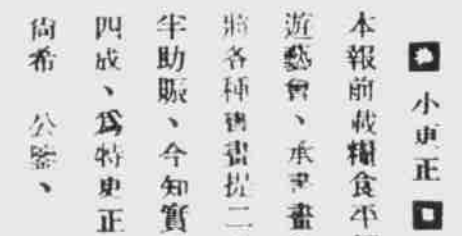 小更正
本報前載糊食平
遊藝會、承書畫
將各種書畫提二
半助賑、今知實
四成、爲特更正
尙希 公鑒、